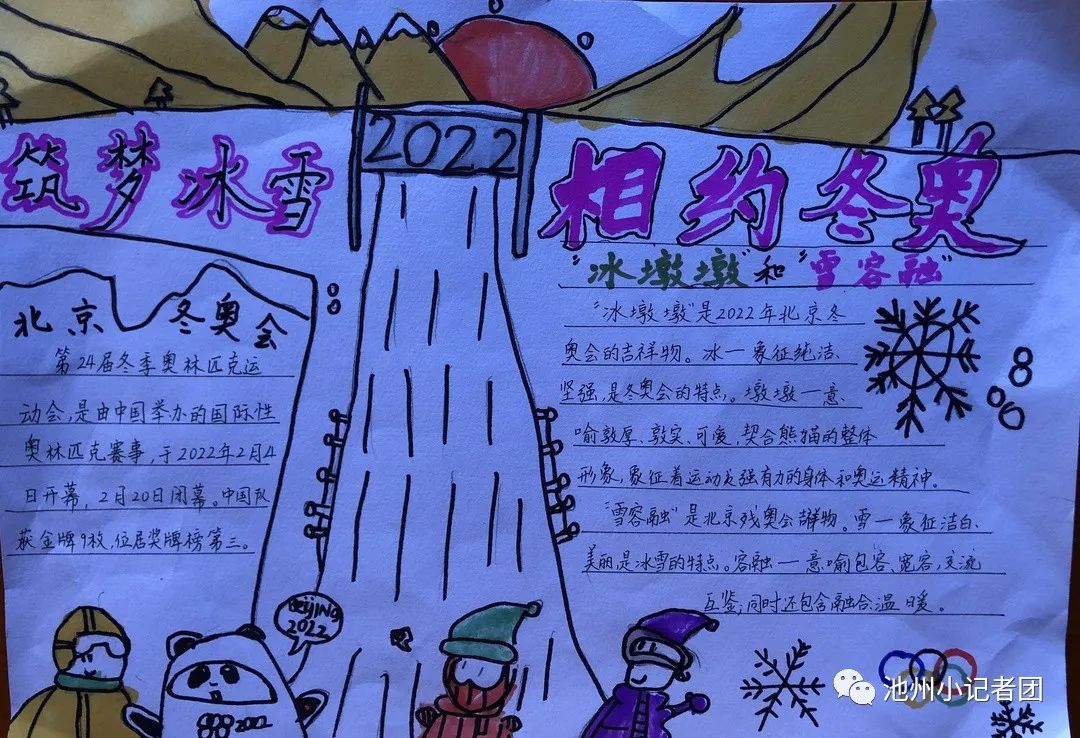 筑梦冰雪
2022
相约冬奥
"冰墩墩"和"雪容融"
北京 冬奥会
第24届冬季奥林匹克运
动会,是由中国举办的国际性
奥林匹克赛事,于2022年2月4
日开幕,2月20日闭幕。中国队
获金牌9枚,位居奖牌榜第三。
"冰墩墩"是2022年北京冬
奥会的吉祥物。冰一象征纯洁、
坚强,是冬奥会的特点。墩墩一意
喻敦厚、敦实、可爱,契合熊猫的整体
形象,象征着运动员强有力的身体和奥运精神。
"雪容融"是北京残奥会物。雪一象征洁白、
美丽,是冰雪的特点。容融一意喻包容、宽容,交流
互鉴;同时还包含融合,温暖。
BeijING
2022
2022
池州小记者团